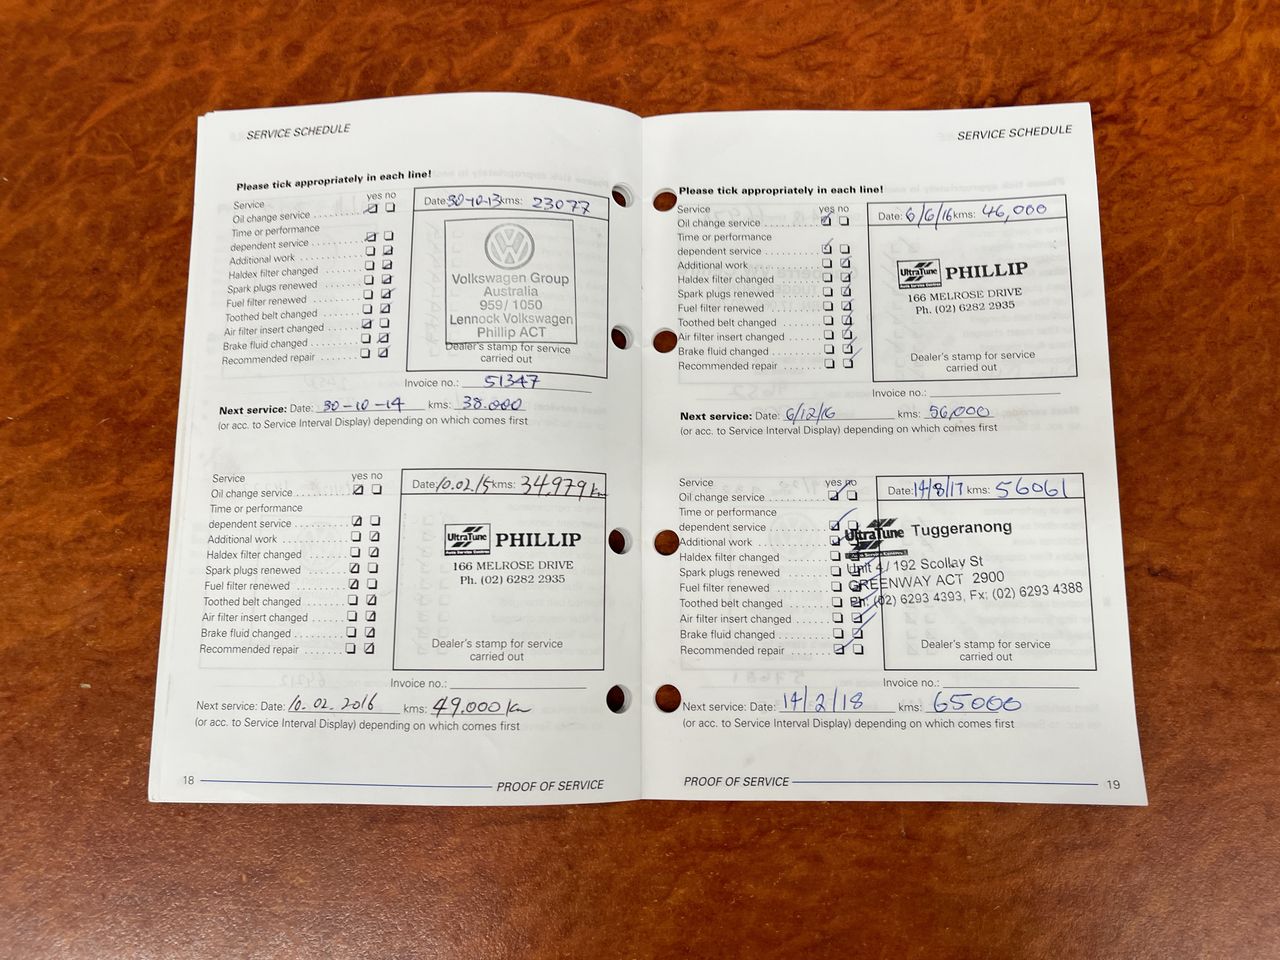 SERVICE SCHEDULE
Please tick appropriately in each line!
Service yes no
Oil change service
Time or performance
dependent service
Additional work
Haldex filter changed
Spark plugs renewed
Fuel filter renewed
Toothed belt changed
Air filter insert changed
Brake fluid changed
Recommended repair
Date: 30-10-13 kms: 23077
Volkswagen Group
Australia
959/ 1050
Lennock Volkswagen
Phillip ACT
Dealer's stamp for service
carried out
Invoice no.: 51347
Next service: Date: 30-10-14 kms: 38.000
(or acc. to Service Interval Display) depending on which comes first
Service yes no
Oil change service
Time or performance
dependent service
Additional work
Haldex filter changed
Spark plugs renewed
Fuel filter renewed
Toothed belt changed
Air filter insert changed
Brake fluid changed
Recommended repair
Date: 10.02.15 kms: 34.979 km
UltraTune PHILLIP
Auto Service Centres
166 MELROSE DRIVE
Ph. (02) 6282 2935
Dealer's stamp for service
carried out
Invoice no.:
Next service: Date: 10.02.2016 kms: 49.000 km
(or acc. to Service Interval Display) depending on which comes first
18 PROOF OF SERVICE
SERVICE SCHEDULE
Please tick appropriately in each line!
Service yes no
Oil change service
Time or performance
dependent service
Additional work
Haldex filter changed
Spark plugs renewed
Fuel filter renewed
Toothed belt changed
Air filter insert changed
Brake fluid changed
Recommended repair
Date: 6/6/16 kms: 46,000
UltraTune PHILLIP
Auto Service Centres
166 MELROSE DRIVE
Ph. (02) 6282 2935
Dealer's stamp for service
carried out
Invoice no.:
Next service: Date: 6/12/16 kms: 56,000
(or acc. to Service Interval Display) depending on which comes first
Service yes no
Oil change service
Time or performance
dependent service
Additional work
Haldex filter changed
Spark plugs renewed
Fuel filter renewed
Toothed belt changed
Air filter insert changed
Brake fluid changed
Recommended repair
Date: 14/8/17 kms: 56061
UltraTune Tuggeranong
Unit 4/ 192 Scollay St
GREENWAY ACT 2900
Ph: (02) 6293 4393, Fx: (02) 6293 4388
Dealer's stamp for service
carried out
Invoice no.:
Next service: Date: 14/2/18 kms: 65000
(or acc. to Service Interval Display) depending on which comes first
PROOF OF SERVICE 19